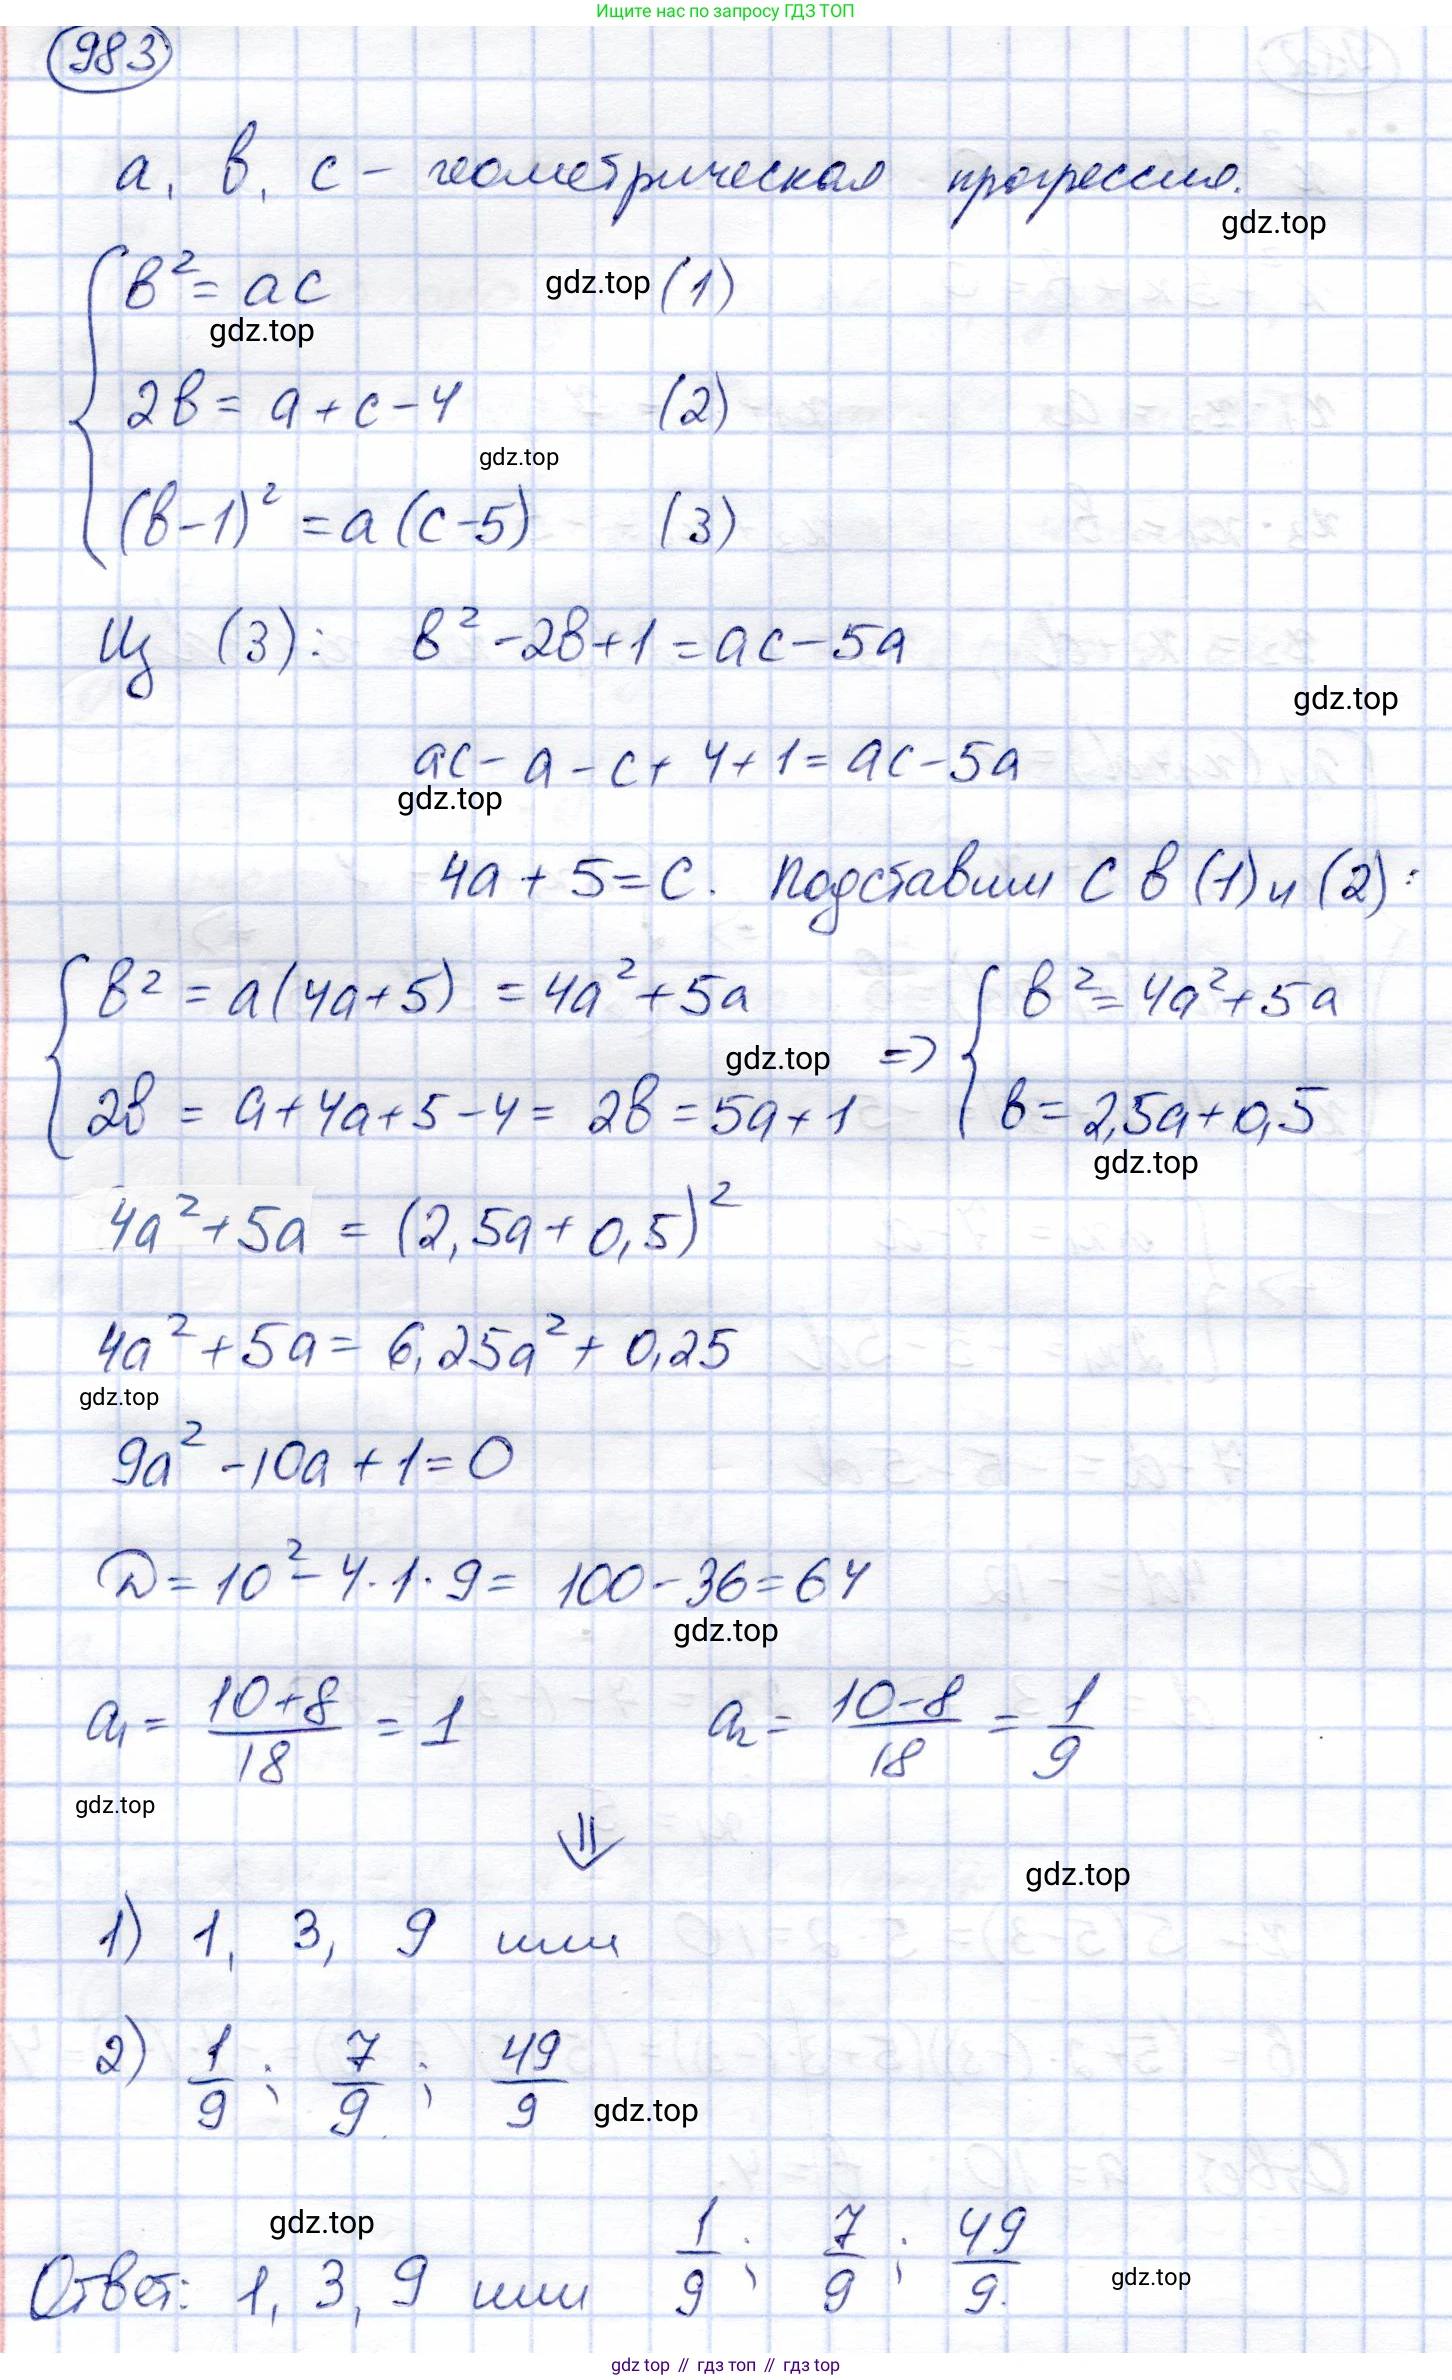 Ищите нас по запросу ГДЗ ТОП
983
a, b, c – геометрическая прогрессия.
gdz.top
b² = ac gdz.top (1)
gdz.top
2b = a + c – 4 (2)
gdz.top
(b–1)² = a(c–5) (3)
Из (3): b² – 2b + 1 = ac – 5a
gdz.top
ac – a – c + 4 + 1 = ac – 5a
gdz.top
4a + 5 = c. Подставим c в (1) и (2):
{ b² = a(4a+5) = 4a² + 5a { b² = 4a² + 5a
gdz.top =>
2b = a + 4a + 5 – 4 = 2b = 5a + 1 b = 2,5a + 0,5
gdz.top
4a² + 5a = (2,5a + 0,5)²
4a² + 5a = 6,25a² + 0,25
gdz.top
9a² – 10a + 1 = 0
D = 10² – 4·1·9 = 100 – 36 = 64
gdz.top
a₁ = (10+8)/18 = 1 a₂ = (10–8)/18 = 1/9
gdz.top
⇓
gdz.top
1) 1, 3, 9 или
2) 1/9 ; 7/9 ; 49/9
gdz.top
gdz.top
Ответ: 1, 3, 9 или 1/9 ; 7/9 ; 49/9.
gdz.top
gdz top // гдз топ // гдз top